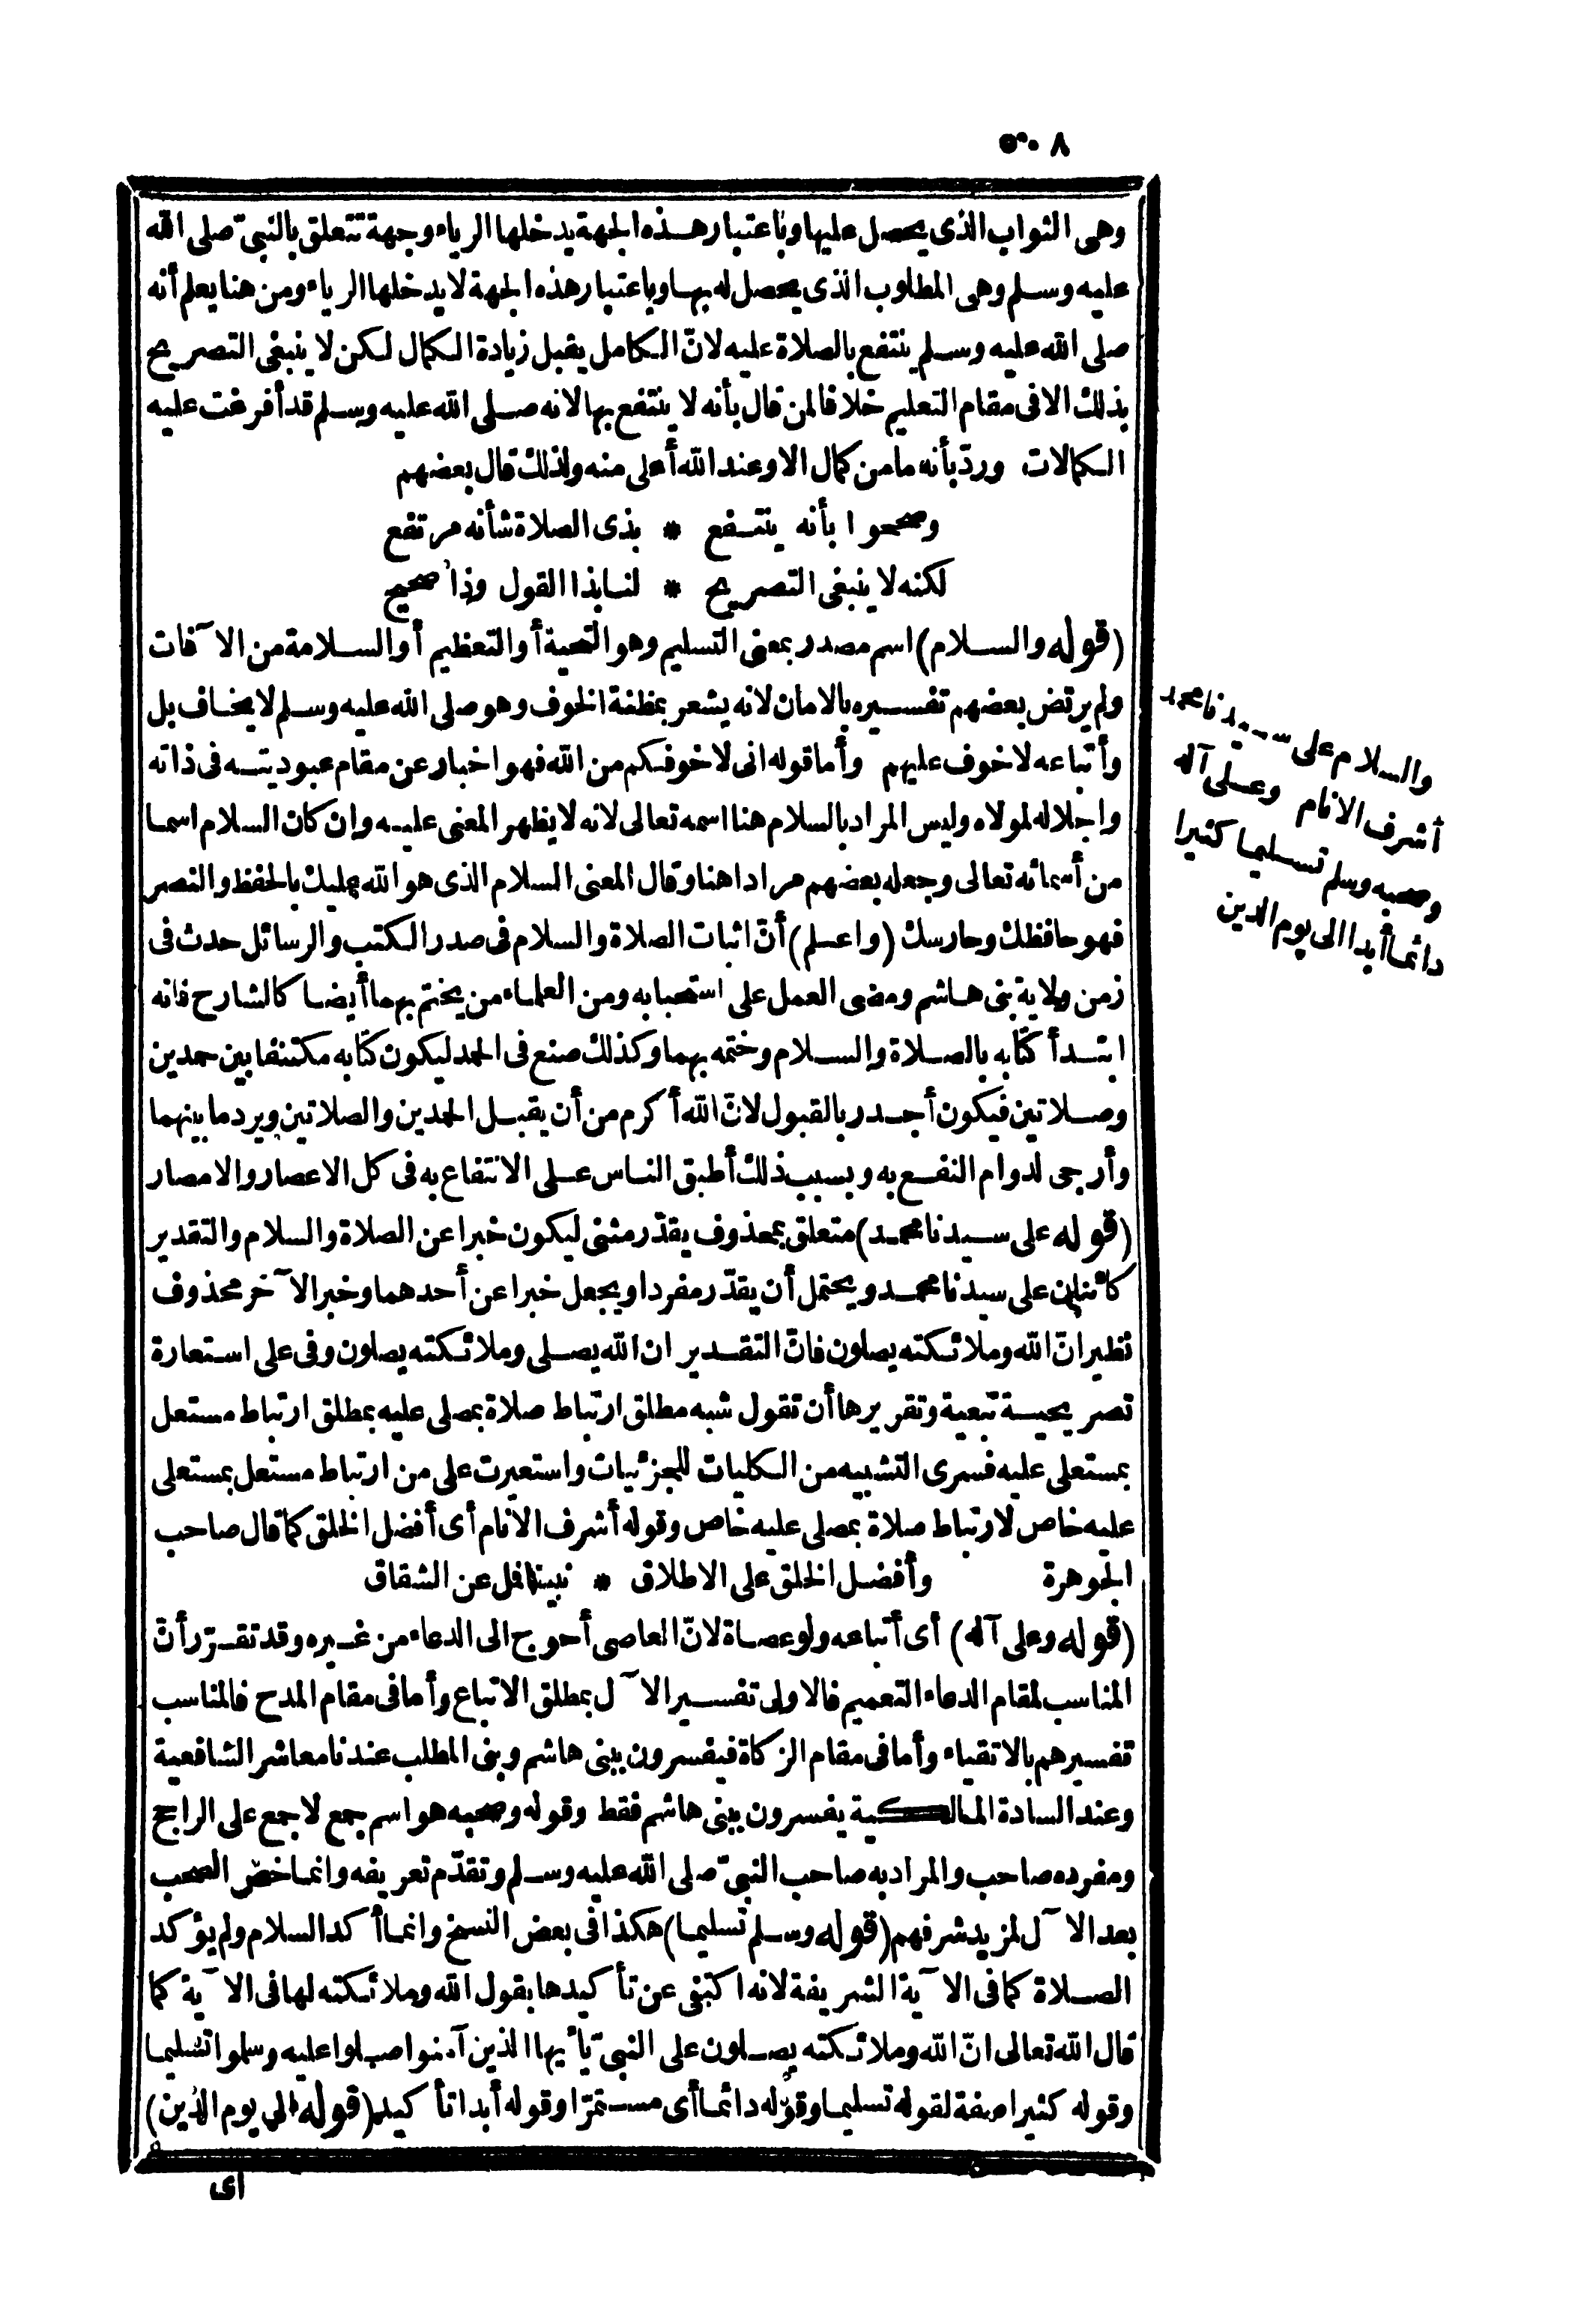 ٨
وهى الثواب الذى يحصل عليها وباعتبار هذه الجهة يدخلها الرياء وجهة تتعلق بالنبىّ صلى الله
عليه وسلم وهى المطلوب الذى يحصل له بها وباعتبار هذه الجهة لا يدخلها الرياء ومن هنا يعلم أنه
صلى الله عليه وسلم ينتفع بالصلاة عليه لانّ الكامل يقبل زيادة الكمال لكن لا ينبغى التصريح
بذلك الا فى مقام التعليم خلافا لمن قال بأنه لا ينتفع بها لانه صلى الله عليه وسلم قد أفرغت عليه
الكمالات وردّ بأنه ما من كمال الا وعند الله أعلى منه ولذلك قال بعضهم
وصححوا بأنه ينتفع * بذى الصلاة شأنه مرتفع
لكنه لا ينبغى التصريح * لنا بذا القول وذا صحيح
(قوله والسلام) اسم مصدر بمعنى التسليم وهو التحية أو التعظيم أو السلامة من الآفات
ولم يرتض بعضهم تفسيره بالامان لانه يشعر بمظنة الخوف وهو صلى الله عليه وسلم لا يخاف بل
وأتباعه لا خوف عليهم وأما قوله انى لاخوفكم من الله فهو اخبار عن مقام عبوديته فى ذاته
واجلاله لمولاه وليس المراد بالسلام هنا اسمه تعالى لانه لا يظهر المعنى عليه وان كان السلام اسما
من أسمائه تعالى وجعله بعضهم مرادا هنا وقال المعنى السلام الذى هو الله عليك بالحفظ والنصر
فهو حافظك وحارسك (واعلم) أنّ اثبات الصلاة والسلام فى صدر الكتب والرسائل حدث فى
زمن ولاية بنى هاشم ومضى العمل على استحبابه ومن العلماء من يختم بهما أيضا كالشارح فانه
ابتدأ كتابه بالصلاة والسلام وختمه بهما وكذلك صنع فى الحمد ليكون كتابه مكتنفا بين حمدين
وصلاتين فيكون أجدر بالقبول لانّ الله أكرم من أن يقبل الحمدين والصلاتين ويرد ما بينهما
وأرجى لدوام النفع به وبسبب ذلك أطبق الناس على الانتفاع به فى كل الاعصار والامصار
(قوله على سيدنا محمد) متعلق بمحذوف يقدّر مثنى ليكون خبرا عن الصلاة والسلام والتقدير
كائنان على سيدنا محمد ويحتمل أن يقدّر مفردا ويجعل خبرا عن أحدهما وخبر الآخر محذوف
نظير انّ الله وملائكته يصلون فانّ التقدير ان الله يصلى وملائكته يصلون وفى على استعارة
تصريحية تبعية وتقريرها أن تقول شبه مطلق ارتباط صلاة بمصلى عليه بمطلق ارتباط مستعل
بمستعلى عليه فسرى التشبيه من الكليات للجزئيات واستعيرت على من ارتباط مستعل بمستعلى
عليه خاص لارتباط صلاة بمصلى عليه خاص وقوله أشرف الانام أى أفضل الخلق كما قال صاحب
الجوهرة وأفضل الخلق على الاطلاق * نبينا فمل عن الشقاق
(قوله وعلى آله) أى أتباعه ولو عصاة لانّ العاصى أحوج الى الدعاء من غيره وقد تقرّر أنّ
المناسب لمقام الدعاء التعميم فالاولى تفسير الآل بمطلق الاتباع وأما فى مقام المدح فالمناسب
تفسيرهم بالاتقياء وأما فى مقام الزكاة فيفسرون ببنى هاشم وبنى المطلب عندنا معاشر الشافعية
وعند السادة المالكية يفسرون ببنى هاشم فقط وقوله وصحبه هو اسم جمع لا جمع على الراجح
ومفرده صاحب والمراد به صاحب النبىّ صلى الله عليه وسلم وتقدّم تعريفه وانما خص الصحب
بعد الآل لمزيد شرفهم (قوله وسلم تسليما) هكذا فى بعض النسخ وانما أكد السلام ولم يؤكد
الصلاة كما فى الآية الشريفة لانه اكتفى عن تأكيدها بقول الله وملائكته لها فى الآية كما
قال الله تعالى انّ الله وملائكته يصلون على النبىّ يأيها الذين آمنوا صلوا عليه وسلموا تسليما
وقوله كثيرا صفة لقوله تسليما وقوله دائما أى مستمرّا وقوله أبدا تأكيد (قوله الى يوم الدين)
اى
والسلام على سيدنا محمد
أشرف الانام وعلى آله
وصحبه وسلم تسليما كثيرا
دائما أبدا الى يوم الدين